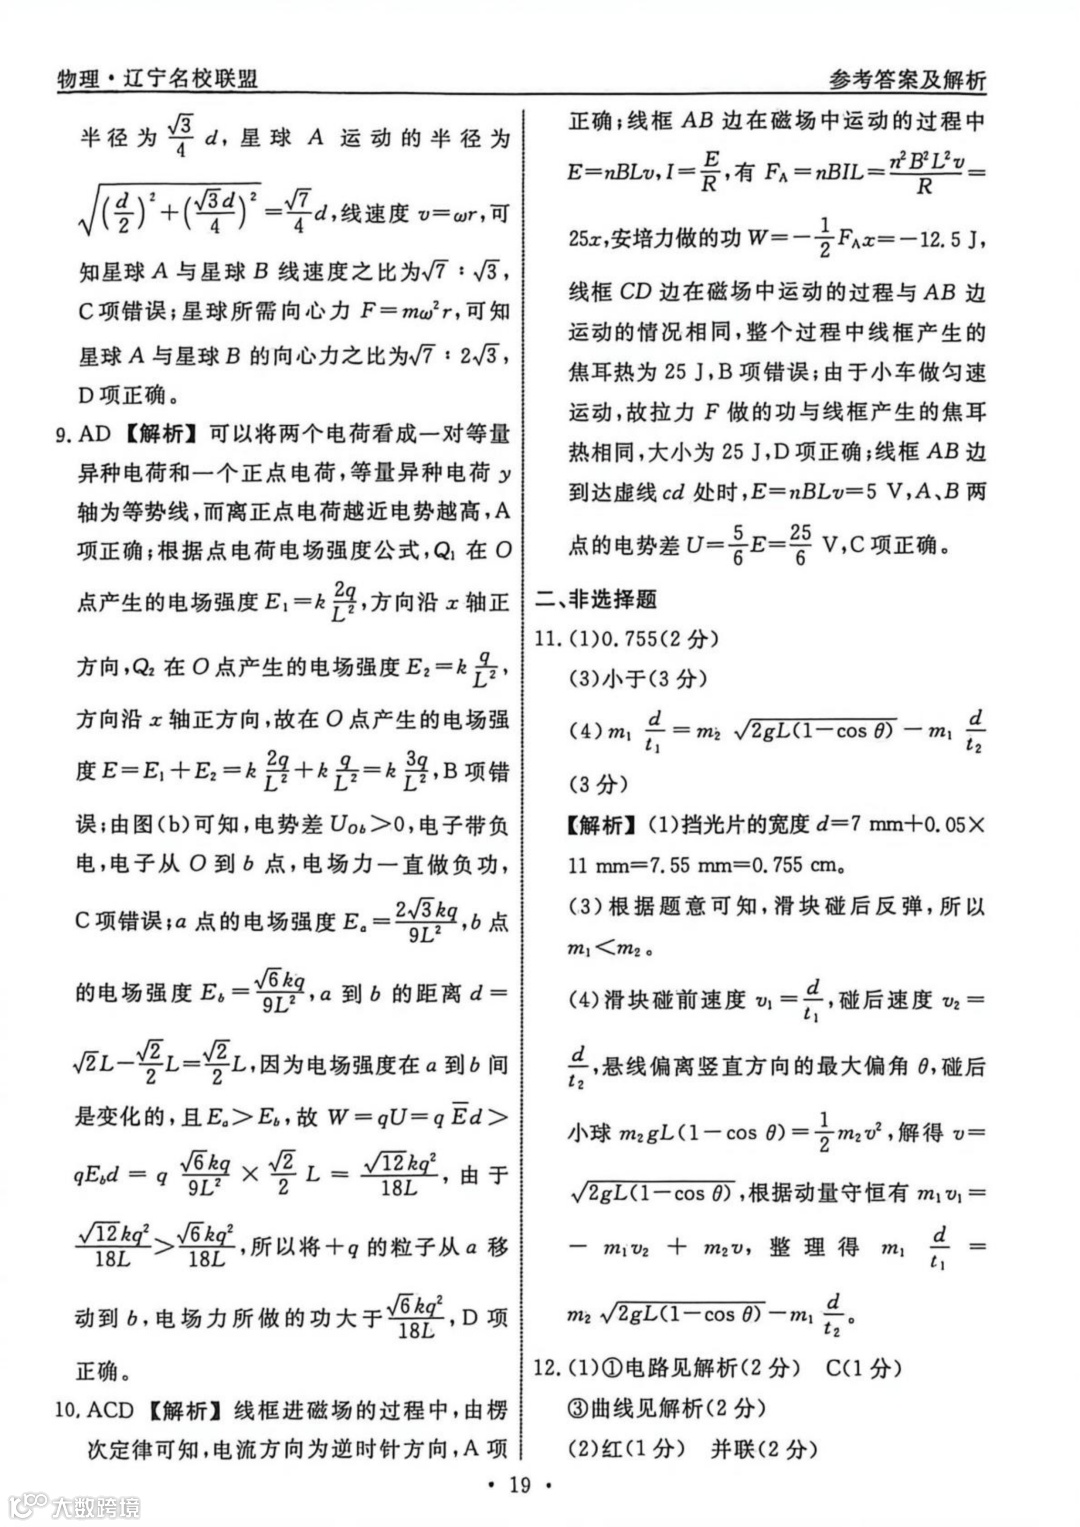 物理·辽宁名校联盟
参考答案及解析
半径为 $\frac{\sqrt{3}}{4}d$，星球 A 运动的半径为
$\sqrt{(\frac{d}{2})^2+(\frac{\sqrt{3}d}{4})^2}=\frac{\sqrt{7}}{4}d$，线速度 v=ωr，可
知星球 A 与星球 B 线速度之比为√7∶√3，
C项错误；星球所需向心力 F=mω²r，可知
星球 A 与星球 B 的向心力之比为√7∶2√3，
D项正确。
9. AD 【解析】可以将两个电荷看成一对等量
异种电荷和一个正点电荷，等量异种电荷 y
轴为等势线，而离正点电荷越近电势越高，A
项正确；根据点电荷电场强度公式，Q₁ 在 O
点产生的电场强度 $E_1=k\frac{2q}{L^2}$，方向沿 x 轴正
方向，Q₂ 在 O 点产生的电场强度 $E_2=k\frac{q}{L^2}$，
方向沿 x 轴正方向，故在 O 点产生的电场强
度 $E=E_1+E_2=k\frac{2q}{L^2}+k\frac{q}{L^2}=k\frac{3q}{L^2}$，B项错
误；由图(b)可知，电势差 $U_{Ob}>0$，电子带负
电，电子从 O 到 b 点，电场力一直做负功，
C项错误；a 点的电场强度 $E_a=\frac{2\sqrt{3}kq}{9L^2}$，b 点
的电场强度 $E_b=\frac{\sqrt{6}kq}{9L^2}$，a 到 b 的距离 d=
$\sqrt{2}L-\frac{\sqrt{2}}{2}L=\frac{\sqrt{2}}{2}L$，因为电场强度在 a 到 b 间
是变化的，且 $E_a>E_b$，故 $W=qU=q\overline{E}d>$
$qE_bd=q\frac{\sqrt{6}kq}{9L^2}×\frac{\sqrt{2}}{2}L=\frac{\sqrt{12}kq^2}{18L}$，由于
$\frac{\sqrt{12}kq^2}{18L}>\frac{\sqrt{6}kq^2}{18L}$，所以将+q 的粒子从 a 移
动到 b，电场力所做的功大于$\frac{\sqrt{6}kq^2}{18L}$，D项
正确。
10. ACD 【解析】线框进磁场的过程中，由楞
次定律可知，电流方向为逆时针方向，A项
正确；线框 AB 边在磁场中运动的过程中
$E=nBLv,I=\frac{E}{R}$，有 $F_A=nBIL=\frac{n^2B^2L^2v}{R}=$
25x，安培力做的功 $W=-\frac{1}{2}F_Ax=-12.5$ J，
线框 CD 边在磁场中运动的过程与 AB 边
运动的情况相同，整个过程中线框产生的
焦耳热为 25 J，B项错误；由于小车做匀速
运动，故拉力 F 做的功与线框产生的焦耳
热相同，大小为 25 J，D项正确；线框 AB 边
到达虚线 cd 处时，E=nBLv=5 V，A、B 两
点的电势差 $U=\frac{5}{6}E=\frac{25}{6}$ V，C项正确。
二、非选择题
11. (1)0.755(2分)
(3)小于(3分)
(4)$m_1\frac{d}{t_1}=m_2\sqrt{2gL(1-\cos θ)}-m_1\frac{d}{t_2}$
(3分)
【解析】(1)挡光片的宽度 d=7 mm+0.05×
11 mm=7.55 mm=0.755 cm。
(3)根据题意可知，滑块碰后反弹，所以
m₁<m₂。
(4)滑块碰前速度 $v_1=\frac{d}{t_1}$，碰后速度 $v_2=$
$\frac{d}{t_2}$，悬线偏离竖直方向的最大偏角 θ，碰后
小球 $m_2gL(1-\cos θ)=\frac{1}{2}m_2v^2$，解得 v=
$\sqrt{2gL(1-\cos θ)}$，根据动量守恒有 $m_1v_1=$
$-m_1v_2+m_2v$，整理得 $m_1\frac{d}{t_1}=$
$m_2\sqrt{2gL(1-\cos θ)}-m_1\frac{d}{t_2}$。
12. (1)①电路见解析(2分) C(1分)
③曲线见解析(2分)
(2)红(1分) 并联(2分)
· 19 ·
大数跨境